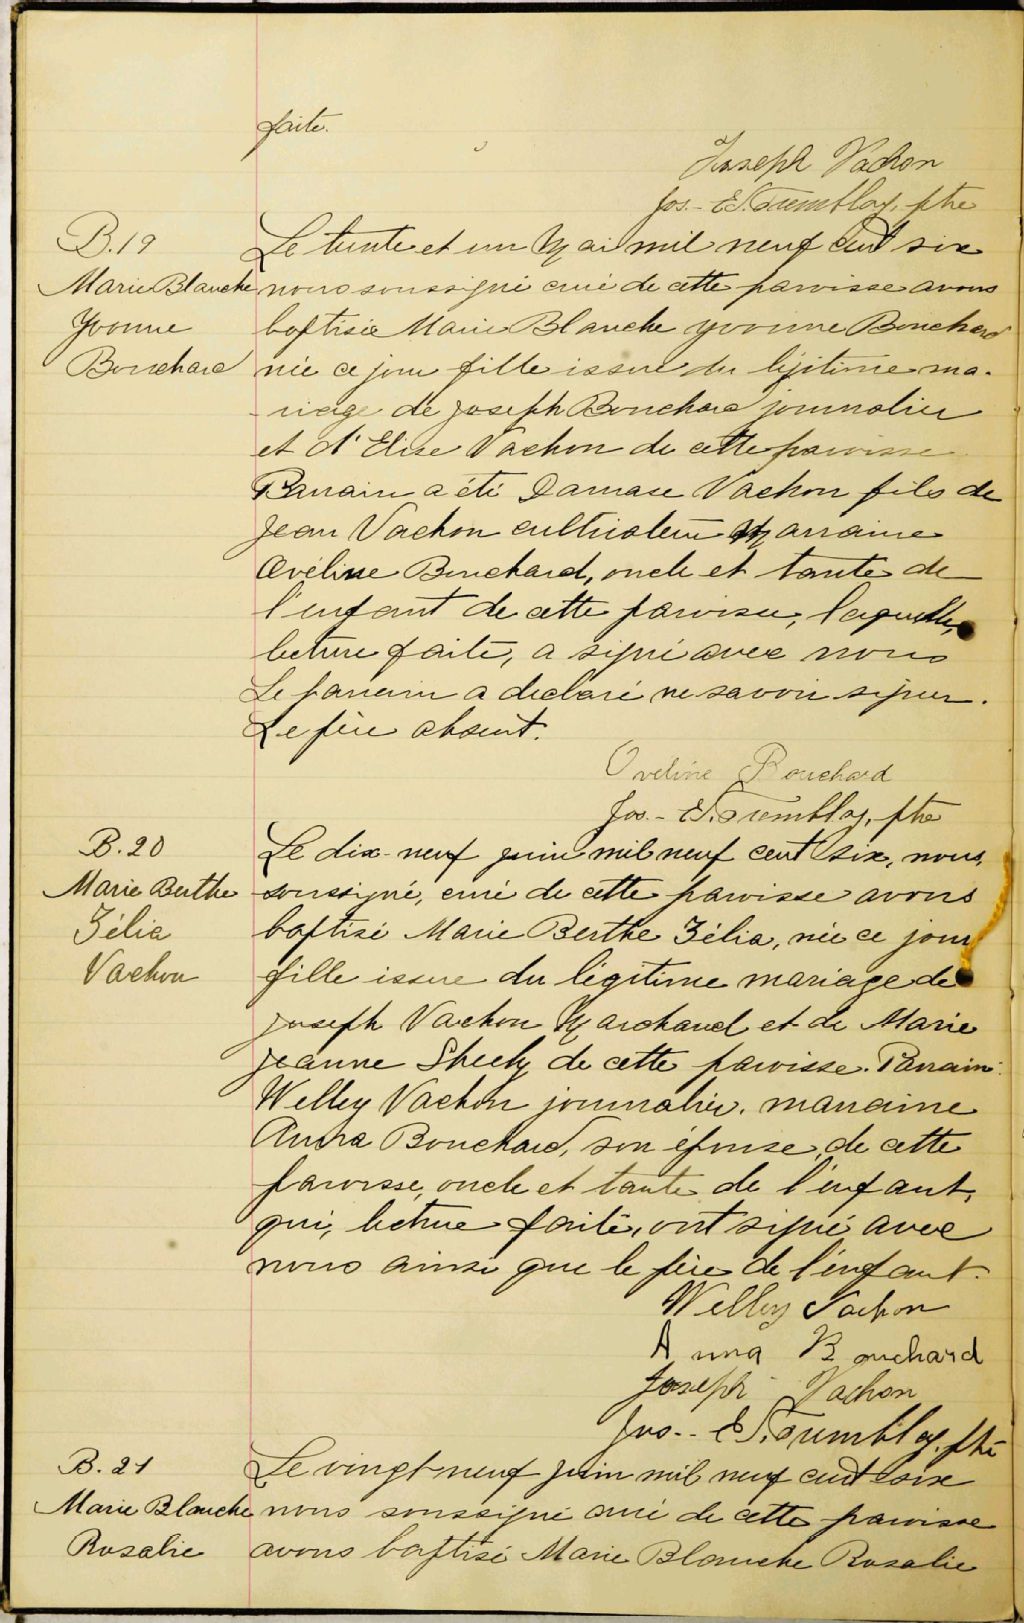 faite.
Joseph Vachon
Jos.- E. Tremblay, ptre
B.19
Marie Blanche
Yvonne
Bouchard
Le trente et un Mai mil neuf cent six
nous soussigné curé de cette paroisse avons
baptisée Marie Blanche Yvonne Bouchard
née ce jour fille issue du légitime ma-
-riage de Joseph Bouchard journalier
et d'Elise Vachon de cette paroisse
Parrain a été Damase Vachon fils de
Jean Vachon cultivateur Marraine
Ovéline Bouchard, oncle et tante de
l'enfant de cette paroisse, laquelle,
lecture faite, a signé avec nous
Le parrain a déclaré ne savoir signer.
Le père absent.
Oveline Bouchard
Jos.- E. Tremblay, ptre
B.20
Marie Berthe
Zélia
Vachon
Le dix-neuf juin mil neuf cent six, nous,
soussigné, curé de cette paroisse avons
baptisé Marie Berthe Zélia, née ce jour
fille issue du légitime mariage de
Joseph Vachon Marchand et de Marie
Jeanne Sheehy de cette paroisse. Parrain:
Welley Vachon journalier. marraine
Anna Bouchard, son épouse, de cette
paroisse, oncle et tante de l'enfant,
qui, lecture faite, ont signé avec
nous ainsi que le père de l'enfant.
Welley Vachon
Anna Bouchard
Joseph Vachon
Jos.- E. Tremblay, ptre
B.21
Marie Blanche
Rosalie
Le vingt-neuf juin mil neuf cent six
nous soussigné curé de cette paroisse
avons baptisé Marie Blanche Rosalie